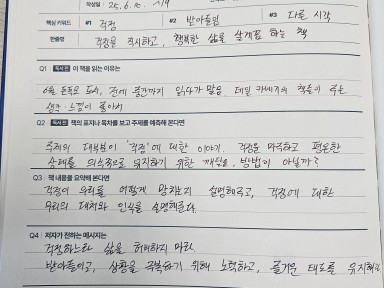 작성일 25. 6. 10. ~19
핵심 키워드 #1 걱정 #2 받아들임 #3 다른 시각
한줄평 걱정을 직시하고, 행복한 삶을 살게끔 하는 책
Q1 독서 전 이 책을 읽는 이유는
6월 독독모 도서, 전에 중간까지 읽다가 말음. 데일 카네기의 책들이 주는
생각·느낌이 좋아서
Q2 독서 전 책의 표지나 목차를 보고 주제를 예측해 본다면
주제의 대부분이 '걱정'에 대한 이야기. 걱정을 마주하고 평온한
상태를 의식적으로 유지하기 위한 깨달음, 방법이 아닐까?
Q3 책 내용을 요약해 본다면
걱정이 우리를 어떻게 망치는지 설명해주고, 걱정에 대한
우리의 대처와 인식을 설명해준다.
Q4 저자가 전하는 메시지는
걱정하느라 삶을 허비하지 마라.
받아들이고, 상황을 극복하기 위해 노력하고, 즐거운 태도를 유지해라